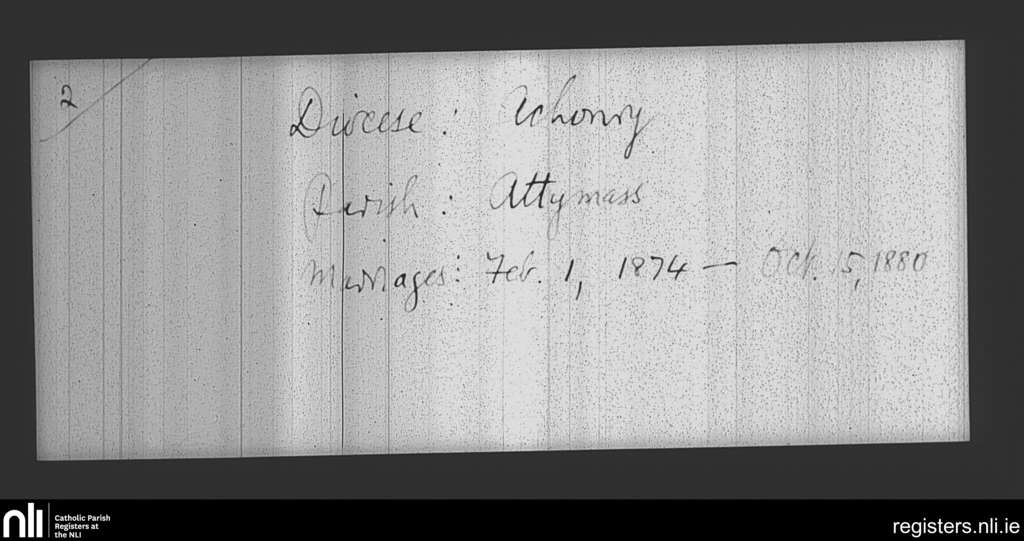 2
Diocese : Achonry
Parish : Attymass
Marriages : Feb. 1, 1874 — Oct. 15, 1880
nli
Catholic Parish
Registers at
the NLI
registers.nli.ie